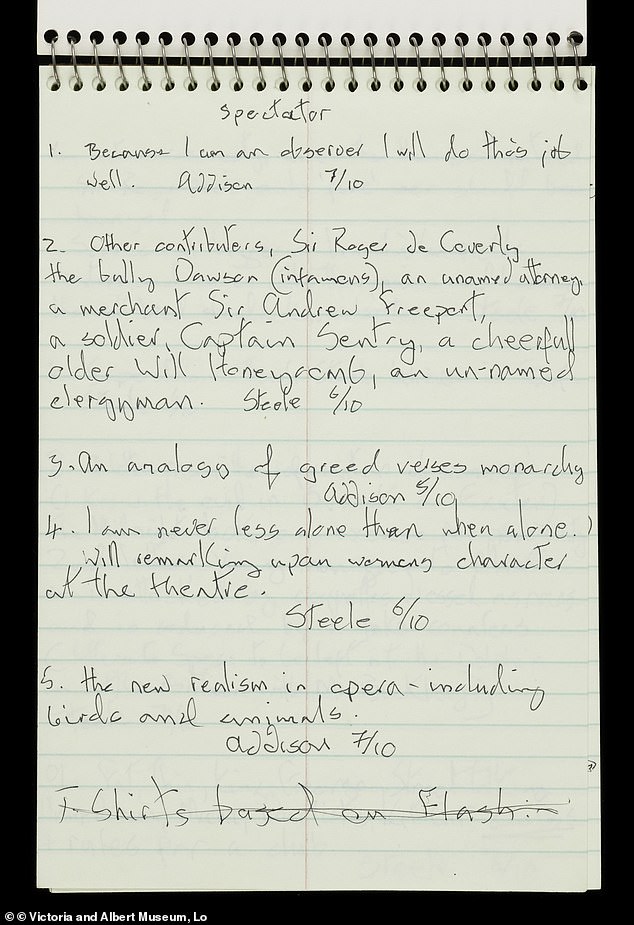 Spectator
1. Because I am an observer I will do this job
well. Addison 7/10
2. Other contributers, Sir Roger de Coverly
the bully Dawson (infamens), an unamed attorney,
a merchant Sir Andrew Freeport,
a soldier, Captain Sentry, a cheerfull
older Will Honeycomb, an un-named
clergyman. Steele 6/10
3. An analogy of greed verses monarchy
Addison 5/10
4. I am never less alone than when alone.)
Will remarking upon womens character
at the theatre.
Steele 6/10
5. the new realism in opera - including
birds and animals.
Addison 7/10
T-Shirts based on Flash.
© © Victoria and Albert Museum, Lo